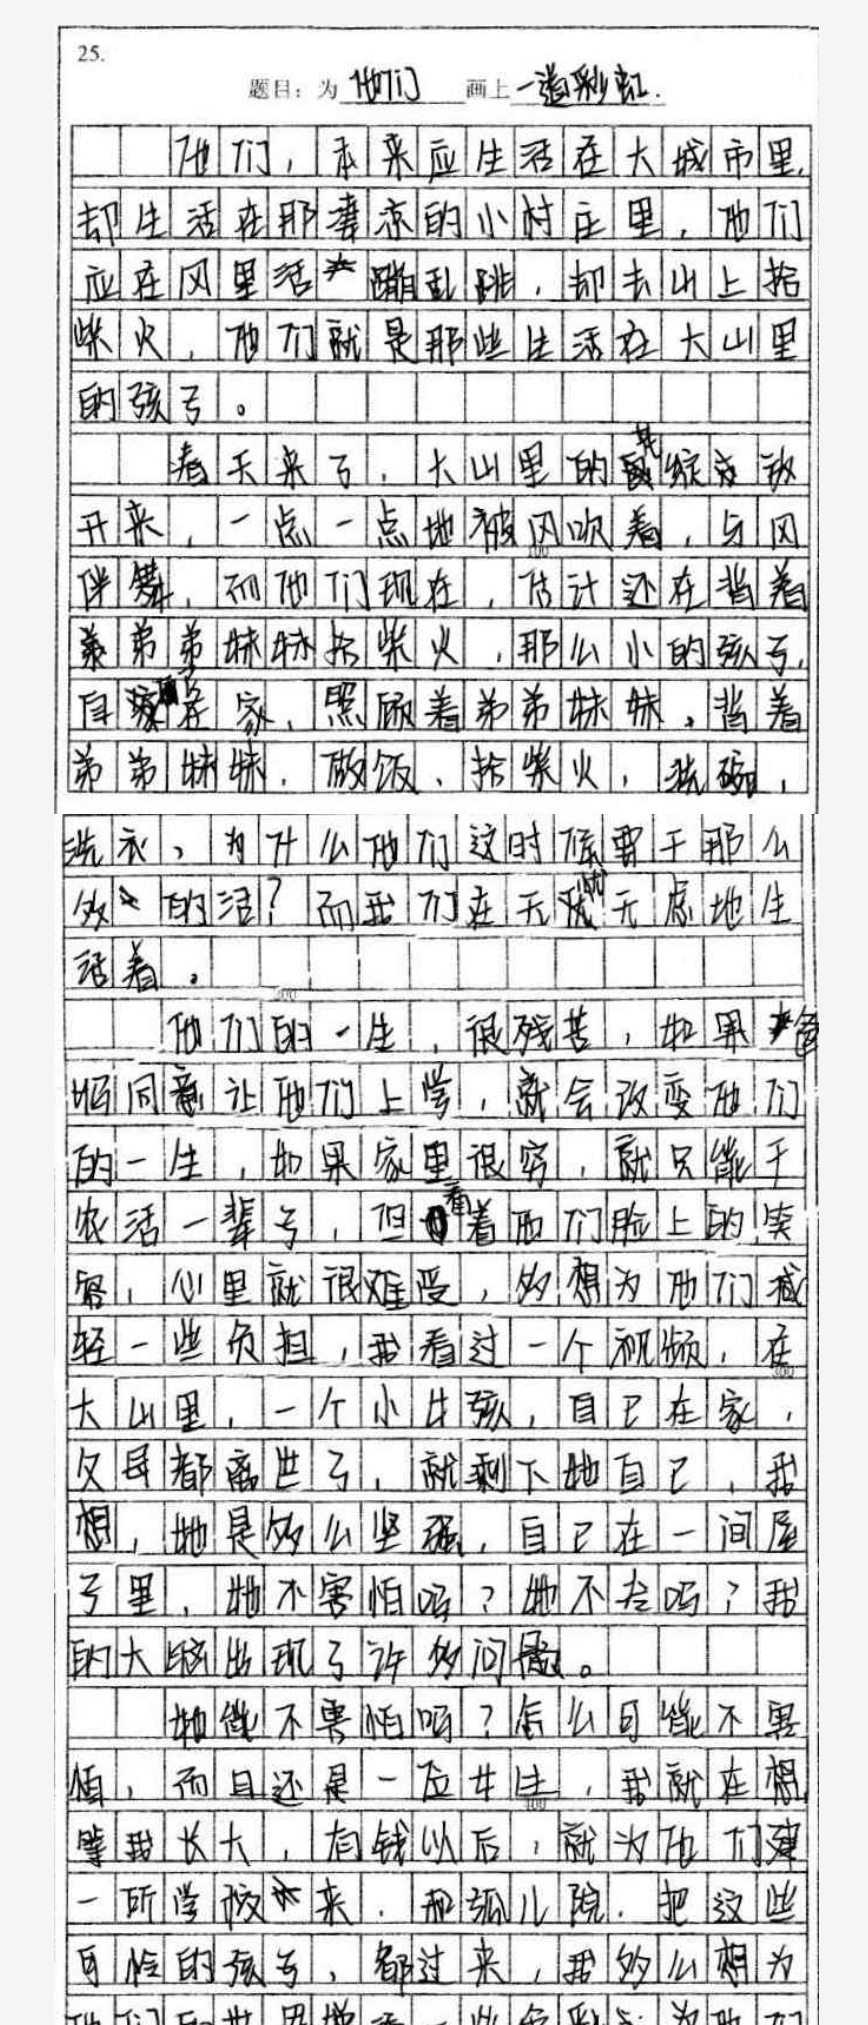 25.
题目：为 他们 画上 一道彩虹.
他们，本来应生活在大城市里，
却生活在那凄凉的小村庄里，他们
应在风里活蹦乱跳，却去山上拾
柴火，他们就是那些生活在大山里
的孩子。
春天来了，大山里的花绽放
开来，一点一点地被风吹着，与风
伴舞，而他们现在，估计还在背着
弟弟妹妹拾柴火，那么小的孩子，
自己在家，照顾着弟弟妹妹，背着
弟弟妹妹，做饭、拾柴火，洗碗，
洗衣，为什么他们这时候要干那么
多的活？而我们在无忧无虑地生
活着。
他们的一生，很残苦，如果爸
妈同意让他们上学，就会改变他们
的一生，如果家里很穷，就只能干
农活一辈子，但看着他们脸上的笑
容，心里就很难受，多想为他们减
轻一些负担，我看过一个视频，在
大山里，一个小女孩，自己在家，
父母都离世了，就剩下她自己，我
想，她是多么坚强，自己在一间屋
子里，她不害怕吗？她不苦吗？我
的大脑出现了许多问题。
她能不害怕吗？怎么可能不害
怕，而且还是一位女生，我就在想，
等我长大，有钱以后，就为他们建
一所学校来，和孤儿院，把这些
可怜的孩子，都过来，我多么想为